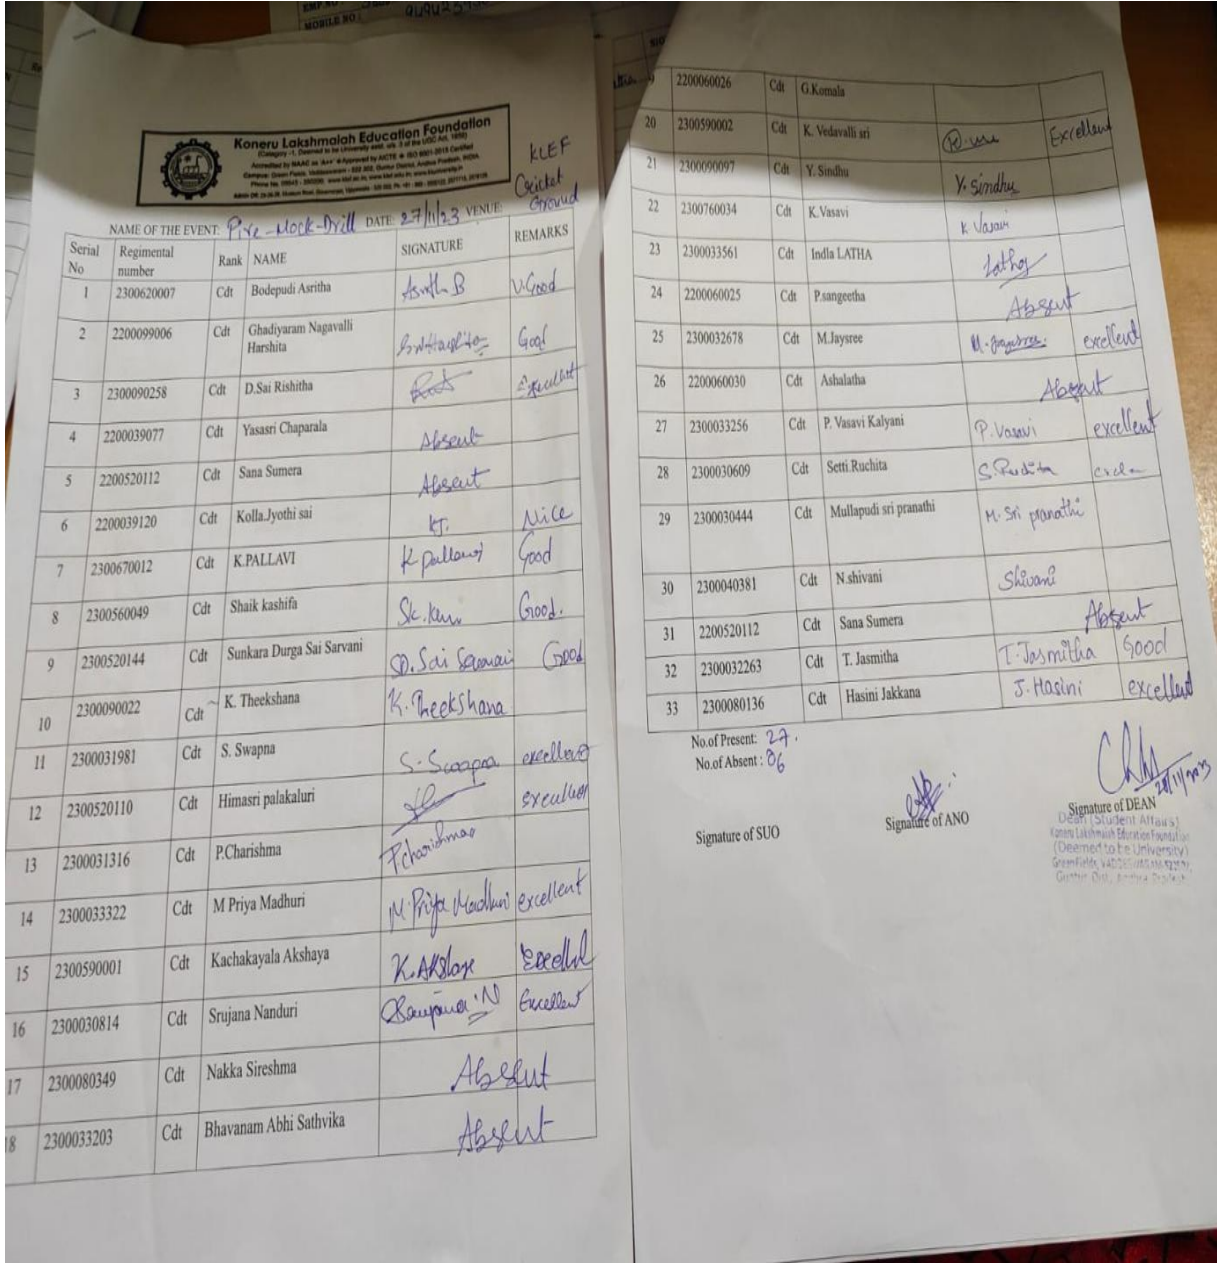 MOBILE NO :
Koneru Lakshmaiah Education Foundation
(Category -1, Deemed to be University estd. u/s. 3 of the UGC Act, 1956)
Accredited by NAAC as 'A++' Approved by AICTE ISO 9001-2015 Certified
Campus: Green Fields, Vaddeswaram - 522 302, Guntur District, Andhra Pradesh, INDIA.
KLEF
Cricket
Ground
NAME OF THE EVENT: Fire-Mock-Drill DATE: 27/11/23 VENUE:
Serial No Regimental number Rank NAME SIGNATURE REMARKS
1 2300620007 Cdt Bodepudi Asritha Asritha B V.Good
2 2200099006 Cdt Ghadiyaram Nagavalli Harshita Good
3 2300090258 Cdt D.Sai Rishitha Excellent
4 2200039077 Cdt Yasasri Chaparala Absent
5 2200520112 Cdt Sana Sumera Absent
6 2200039120 Cdt Kolla.Jyothi sai KJ. Nice
7 2300670012 Cdt K.PALLAVI K pallavi Good
8 2300560049 Cdt Shaik kashifa Good.
9 2300520144 Cdt Sunkara Durga Sai Sarvani D.Sai Sarvani Good
10 2300090022 Cdt K. Theekshana K. Theekshana
11 2300031981 Cdt S. Swapna S. Swapna excellent
12 2300520110 Cdt Himasri palakaluri excellent
13 2300031316 Cdt P.Charishma P.charishma
14 2300033322 Cdt M Priya Madhuri M.Priya Madhuri excellent
15 2300590001 Cdt Kachakayala Akshaya K.Akshaya Excellent
16 2300030814 Cdt Srujana Nanduri Srujana.N Excellent
17 2300080349 Cdt Nakka Sireshma Absent
18 2300033203 Cdt Bhavanam Abhi Sathvika Absent
2200060026 Cdt G.Komala
20 2300590002 Cdt K. Vedavalli sri Excellent
21 2300090097 Cdt Y. Sindhu Y. Sindhu
22 2300760034 Cdt K.Vasavi K Vasavi
23 2300033561 Cdt Indla LATHA Latha
24 2200060025 Cdt P.sangeetha Absent
25 2300032678 Cdt M.Jaysree M. Jaysree. excellent
26 2200060030 Cdt Ashalatha Absent
27 2300033256 Cdt P. Vasavi Kalyani P.Vasavi excellent
28 2300030609 Cdt Setti.Ruchita S.Ruchita
29 2300030444 Cdt Mullapudi sri pranathi M. Sri pranathi
30 2300040381 Cdt N.shivani Shivani
31 2200520112 Cdt Sana Sumera Absent
32 2300032263 Cdt T. Jasmitha T. Jasmitha Good
33 2300080136 Cdt Hasini Jakkana J. Hasini excellent
No.of Present: 27.
No.of Absent: 06
Signature of SUO
Signature of ANO
28/11/2023
Signature of DEAN
Dean (Student Affairs)
Koneru Lakshmaiah Education Foundation
(Deemed to be University)